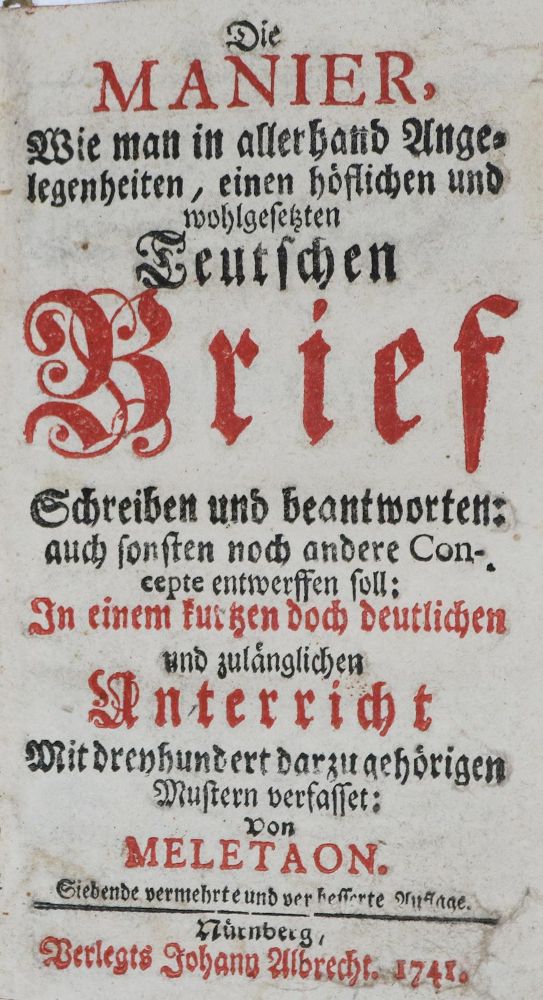 Die
MANIER,
Wie man in allerhand Ange-
legenheiten, einen höflichen und
wohlgesetzten
Teutschen
Brief
Schreiben und beantworten:
auch sonsten noch andere Con-
cepte entwerffen soll:
In einem kurtzen doch deutlichen
und zulänglichen
Unterricht
Mit dreyhundert darzu gehörigen
Mustern verfasset:
von
MELETAON.
Siebende vermehrte und verbesserte Auflage.
Nürnberg,
Verlegts Johann Albrecht. 1741.